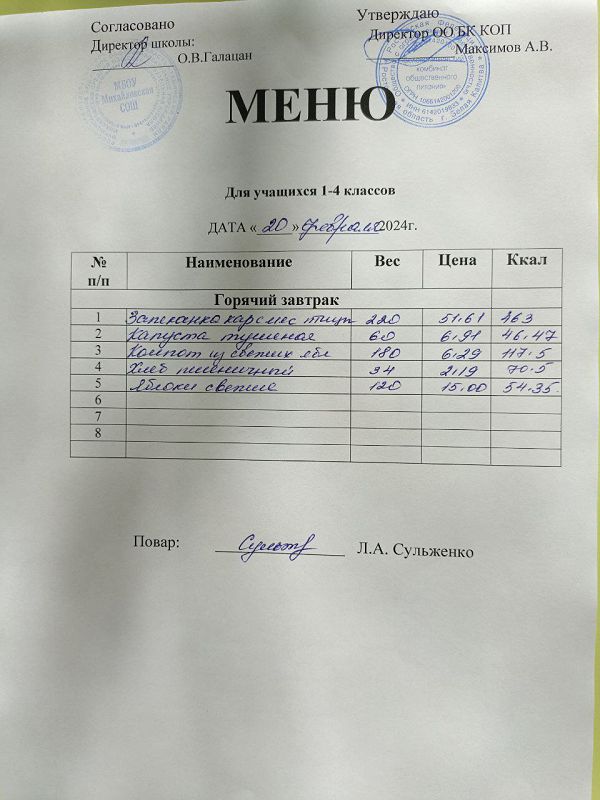 Согласовано
Утверждаю
Директор школы:
Директор ОО БК КОП
О.В.Галацан
Максимов А.В.
МБОУ
Михайловская
СОШ
комбинат
общественного
питания»
МЕНЮ
Для учащихся 1-4 классов
ДАТА « 20 » февраля 2024г.
№ п/п Наименование Вес Цена Ккал
Горячий завтрак
1 Запеканка кар с мес птиц 220 51.61 463
2 Капуста тушеная 60 6.91 46.47
3 Компот из свежих ябл 180 6.29 117.5
4 Хлеб пшеничный 34 2.19 70.5
5 Яблоки свежие 120 15.00 54.35.
6
7
8
Повар: Л.А. Сульженко